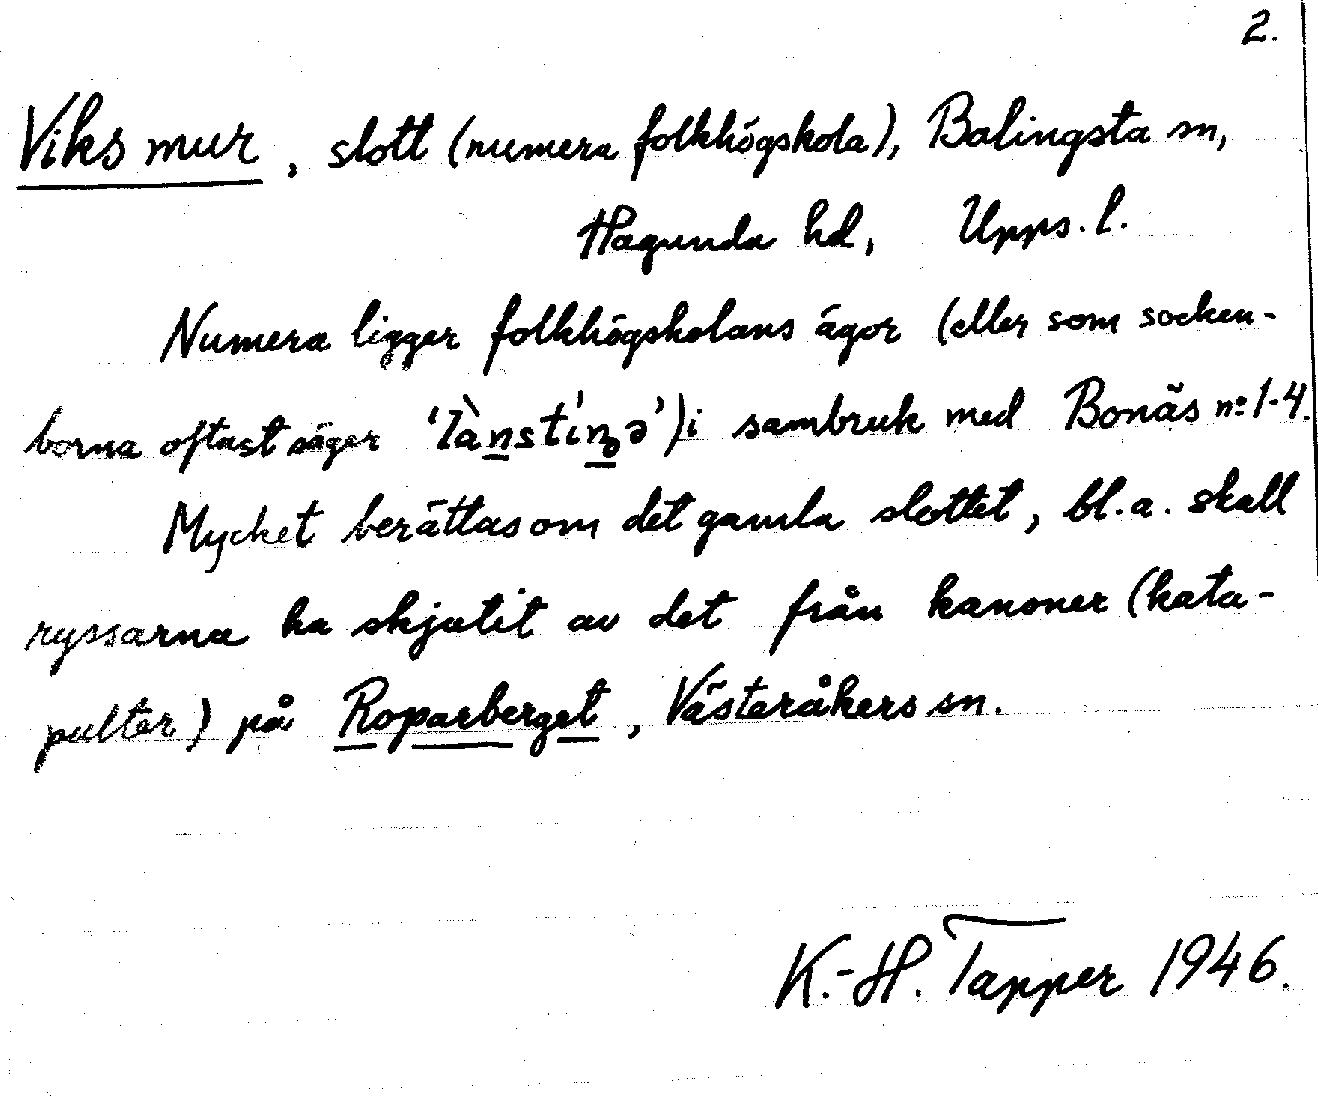 2.
Viks mur, slott (numera folkhögskola), Balingsta sn,
Hagunda hd, Upps. l.
Numera ligger folkhögskolans ägor (eller som socken-
borna oftast säger ') i sambruk med Bonäs nº 1-4.
Mycket berättas om det gamla slottet, bl.a. skall
ryssarna ha skjutit av det från kanoner (kata-
pulter) på Roparberget, Västeråkers sn.
K.-H. Tapper 1946.